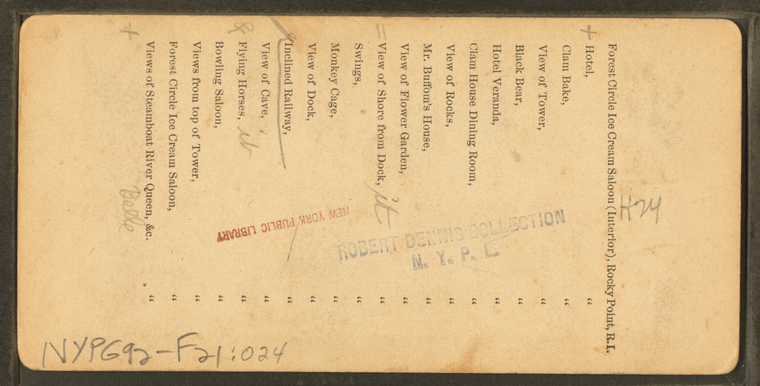 Forest Circle Ice Cream Saloon (Interior), Rocky Point, R.I.
+ Hotel, "
Clam Bake, "
View of Tower, "
Black Bear, "
Hotel Veranda, "
Clam House Dining Room, "
View of Rocks, "
Mr. Buffom's House, "
View of Flower Garden, "
= View of Shore from Dock, "
Swings, "
Monkey Cage, "
View of Dock, "
Inclined Railway, "
View of Cave, "
Flying Horses, "
Bowling Saloon, "
Views from top of Tower, "
Forest Circle Ice Cream Saloon, "
+ Views of Steamboat River Queen, &c. "
Belle
H24
NEW YORK PUBLIC LIBRARY
ROBERT DENNIS COLLECTION
N. Y. P. L.
NYPG92-F21:024